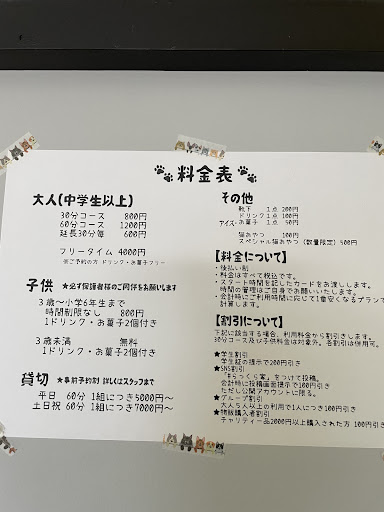 料金表
大人(中学生以上)
30分コース 800円
60分コース 1200円
延長30分毎 600円
フリータイム 4000円
※ご予約の方 ドリンク・お菓子フリー
子供 ★必ず保護者様のご同伴をお願いします
3歳~小学6年生まで
時間制限なし 800円
1ドリンク・お菓子2個付き
3歳未満 無料
1ドリンク・お菓子2個付き
貸切 ★事前予約制 詳しくはスタッフまで
平日 60分 1組につき5000円~
土日祝 60分 1組につき7000円~
その他
靴下 1点 200円
ドリンク 1点 100円
アイス・お菓子 1点 50円
猫おやつ 100円
スペシャル猫おやつ (数量限定) 500円
【料金について】
・後払い制
・料金はすべて税込です。
・スタート時間を記したカードをお渡しします。
時間の管理はご自身でお願いいたします。
・会計時にご利用時間に応じて1番安くなるプランで
計算します。
【割引について】
下記に該当する場合、利用料金から割引きします。
30分コース及び子供料金は対象外。各割引併用可。
★学生割引
学生証の提示で200円引き
★SNS割引
「#らっくら家」をつけて投稿。
会計時に投稿画面提示で100円引き
ただし公開アカウントに限る。
★グループ割引
大人5人以上の利用で1人につき100円引き
★物販購入者割引
チャリティー品2000円以上購入された方 100円引き